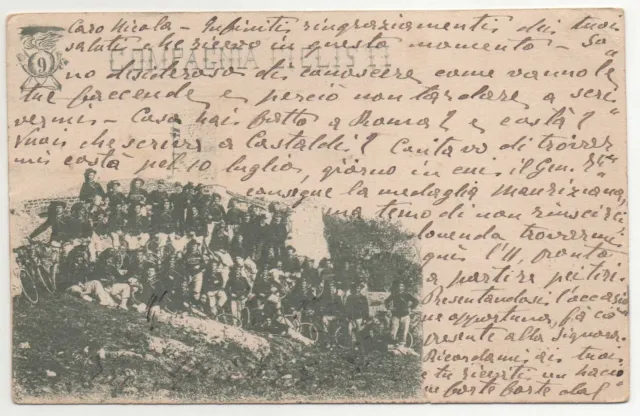 Caro Nicola - Infiniti ringraziamenti dei tuoi
saluti che ricevo in questo momento - So
9
COMPAGNIA CICLISTI
no desideroso di conoscere come vanno le
tue faccende e perciò non tardare a scri
vermi - Cosa hai fatto a Roma? e costà?
Vuoi che scriva a Castaldi? Contavo di trovar
mi costà pel 10 luglio, giorno in cui il Gen.
consegne la medaglia Mauriziana,
ma temo di non riuscirci
dovendo trovarmi
qui l'11, pronto
a partire pei tiri.
Presentandosi l'occasio
ne opportuna, fa ciò
presente alla Signora.
Ricordami ai tuoi
e tu ricevi un bacio
forte forte dal